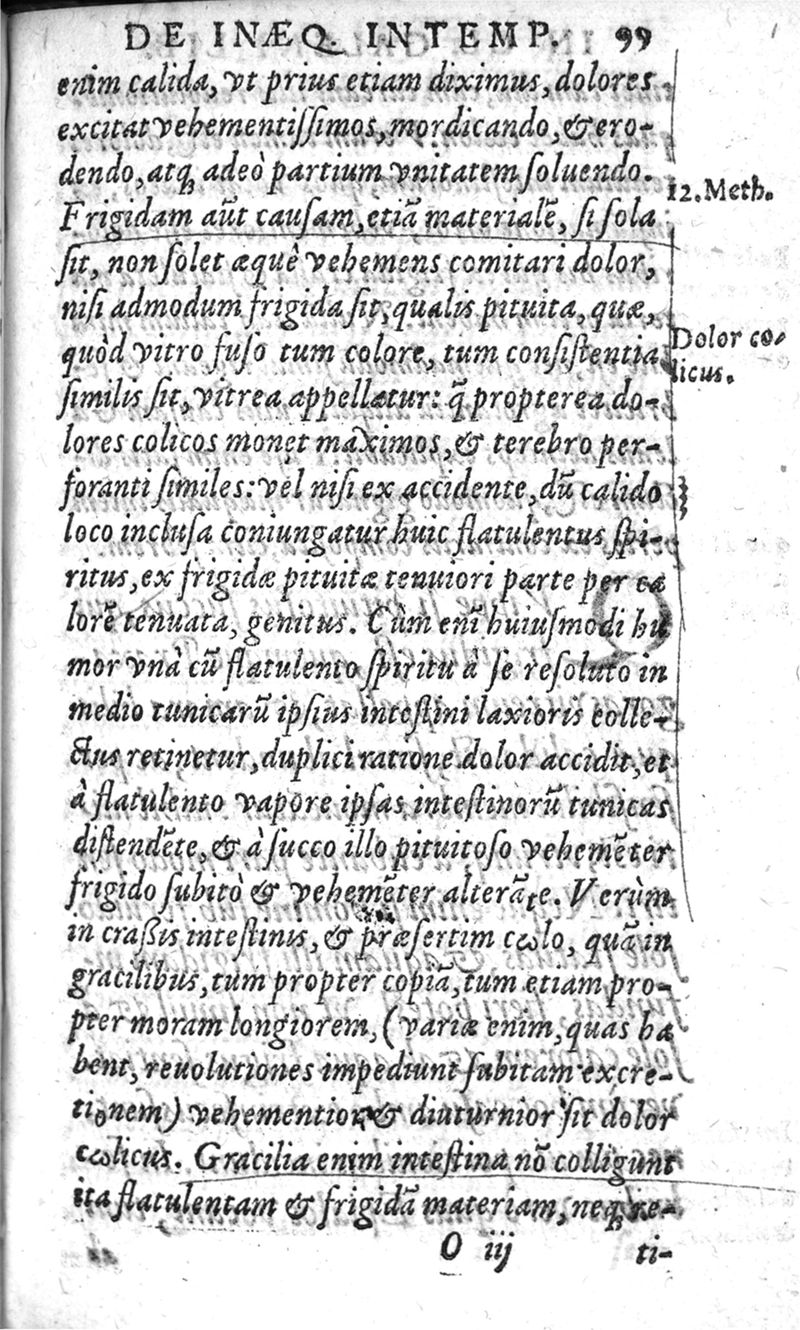 DE INÆQ. INTEMP. 99
enim calida, vt prius etiam diximus, dolores
excitat vehementiſſimos, mordicando, & ero-
dendo, atq̃ adeò partium vnitatem ſoluendo.
12. Meth.
Frigidam aũt cauſam, etiã materialẽ, ſi ſola
ſit, non ſolet æquè vehemens comitari dolor,
niſi admodum frigida ſit, qualis pituita, quæ,
Dolor co-
quòd vitro fuſo tum colore, tum conſiſtentia
licus.
ſimilis ſit, vitrea appellatur: q̃ propterea do-
lores colicos monet maximos, & terebro per-
foranti ſimiles: vel niſi ex accidente, dũ calido
loco incluſa coniungatur huic flatulentus ſpi-
ritus, ex frigidæ pituitæ tenuiori parte per ca
lorẽ tenuata, genitus. Cùm enĩ huiuſmodi hu
mor vnà cũ flatulento ſpiritu à ſe reſoluto in
medio tunicarũ ipſius inteſtini laxioris colle-
ctus retinetur, duplici ratione dolor accidit, et
à flatulento vapore ipſas inteſtinorũ tunicas
diſtendẽte, & à ſucco illo pituitoſo vehemẽter
frigido ſubitò & vehemẽter alterãte. Verùm
in craßis inteſtinis, & præſertim cωlo, quã in
gracilibus, tum propter copiã, tum etiam pro-
pter moram longiorem, (variæ enim, quas ha
bent, reuolutiones impediunt ſubitam excre-
tionem) vehementior & diuturnior ſit dolor
cωlicus. Gracilia enim inteſtina nõ colligunt
ita flatulentam & frigidã materiam, neq̃ re-
O iij ti-